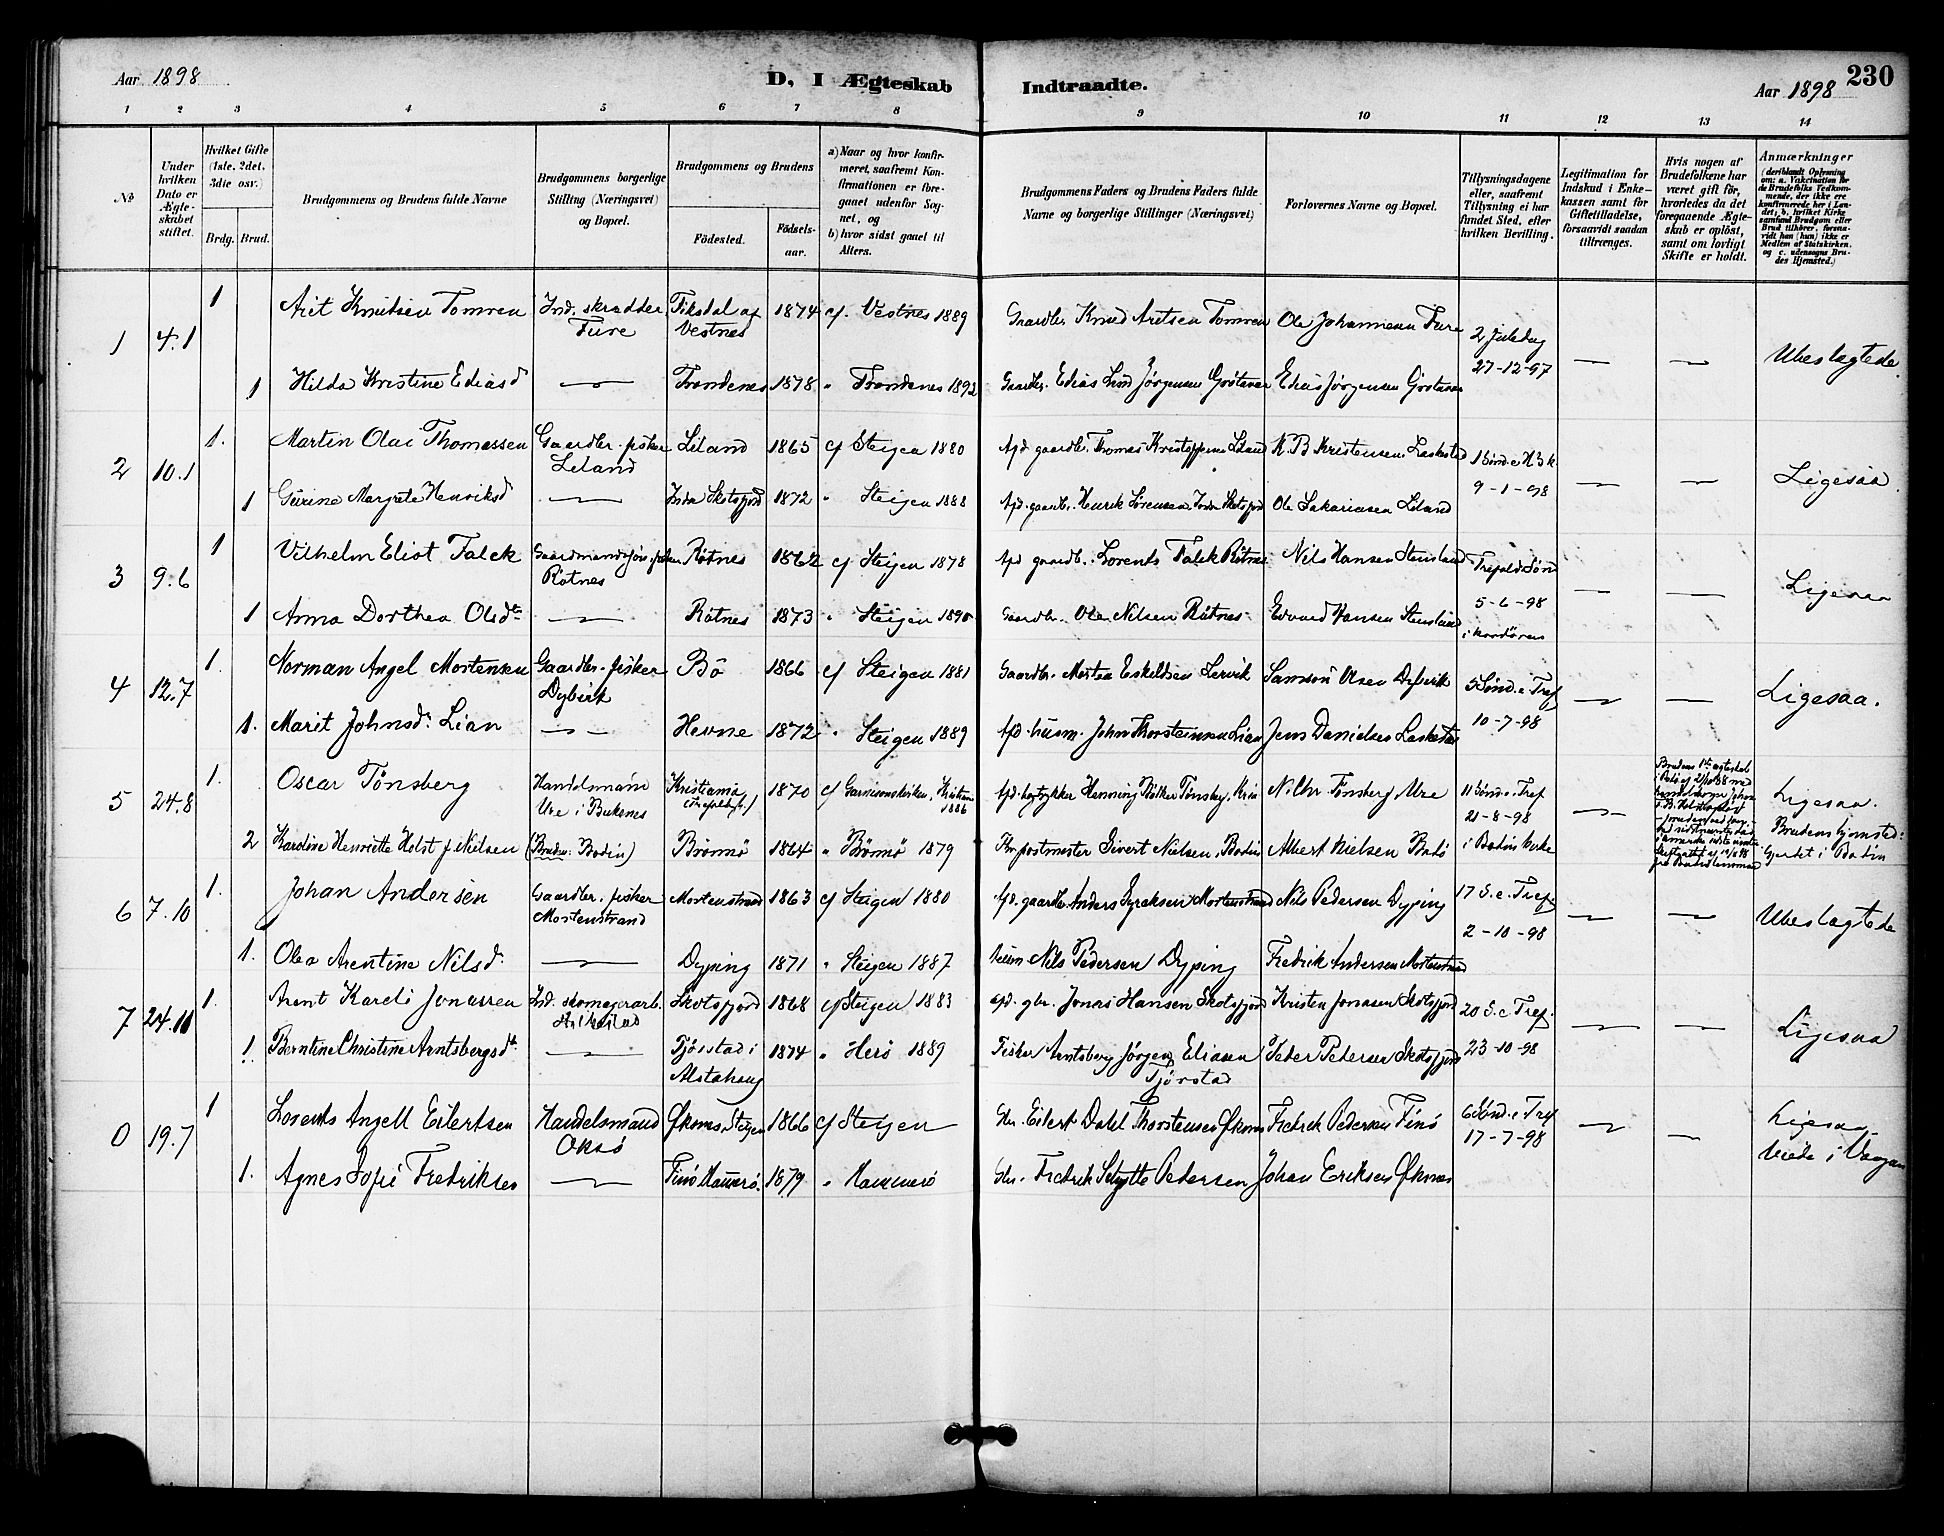 Aar 1898
D. I Ægteskab Indtraadte.
Aar 1898
230
1 2 3 4 5 6 7 8 9 10 11 12 13 14
№
Under hvilken Dato er Ægteskabet stiftet.
Hvilket Gifte (1ste, 2det, 3die osv.)
Brdg. Brud.
Brudgommens og Brudens fulde Navne
Brudgommens borgerlige Stilling (Næringsvei) og Bopæl.
Brudgommens og Brudens
Fødested.
Fødsels-aar.
a) Naar og hvor konfirmeret, saafremt Konfirmationen er foregaaet udenfor Sognet, og
b) hvor sidst gaaet til Alters.
Brudgommens Faders og Brudens Faders fulde Navne og borgerlige Stillinger (Næringsvei)
Forlovernes Navne og Bopæl.
Tillysningsdagene eller, saafremt Tillysning ei har fundet Sted, efter hvilken Bevilling.
Legitimation for Indskud i Enkekassen samt for Giftetilladelse, forsaavidt saadan tiltrænges.
Hvis nogen af Brudefolkene har været gift før, hvorledes da det foregaaende Ægteskab er opløst, samt om lovligt Skifte er holdt.
Anmærkninger (deriblandt Oplysning om: a. Vakcination for de Brudefolks Vedkommende, der ikke ere konfirmerede her i Landet; b. hvilket Kirkesamfund Brudgom eller Brud tilhører, forsaavidt han (hun) ikke er Medlem af Statskirken, og c. udensogns Brudes Hjemsted.)
1 4.1 1 Arit Knutsen Tomren Ind. skrædder Fure Tiksdal af Vestnes 1874 cf. Vestnes 1889 Gaardbr. Knud Aritsen Tomren Ole Johannesen Fure 2 Juledag 27-12-97 Ubeslægtede.
1 Hilda Kristine Ediasd Trondenes 1878 " Trondenes 1892 Gaardbr. Edias Lind Jørgensen Grøtavær Edias Jørgensen Grøtavær
2 10.1 1. Martin Olai Thomassen Gaardbr. fisker Leland Leland 1865 cf Steigen 1880 Afd. gaardbr. Thomas Kristoffersen Leland K. B Kristensen Laskestad 1 Sønd. e. H3k 9-1-98 Ligesaa.
1 Gurine Margrete Henriksd Indre Skotsfjord 1872 " Steigen 1888 Afd. gaardbr. Henrik Sørensen Indre Skotsfjord Ole Sakariasen Leland
3 9.6 1 Vilhelm Eliot Falck Gaardmandssøn fisker Røtnes Røtnes 1862 cf Steigen 1878 Afd gaardb. Lorents Falck Røtnes Nils Hansen Stensland Trefolds Sønd 5-6-98 i kordøren Ligesaa
1 Anna Dorthea Olsdtr Røtnes 1873 " Steigen 1890 Gaardbr. Ole Nilsen Røtnes Edvard Hansen Stensland
4 12.7 1. Norman Angel Mortensen Gaardbr. fisker Dybvik Bø 1866 cf Steigen 1881 Gaardbr. Morten Eskildsen Lervik Samson Olsen Dybvik 5 Sønd. e Tref 10-7-98 Ligesaa.
1. Marit Johnsdr Lian Hevne 1872 " Steigen 1889 Afd. husm. John Thorsteinsen Lian Jens Danielsen Laskestad
5 24.8 1. Oscar Tønsberg Handelsmann Ure i Buksnes Kristiania 1870 cf Garnisonskirken, Kristiania 1886 Afd. bogtrykker Henning Tønsberg, Kr.ia N. Chr. Tønsberg, Ure 11 Sønd. e. Tref 21-8-98 i Bodin kirke Ligesaa.
2 Karoline Henriette Holst f. Nielsen (Bruden: Bodin) Brønnø 1864 " Brønnø 1879 Fhv postmester Sivert Nielsen, Bodin Albert Nielsen Bodø Brudens hjemsted: Gjerdet i Bodin
6 7.10 1. Johan Andersen Gaardbr. fisker Mortenstrand Mortenstrand 1863 cf Steigen 1880 Afd. gaardbr. Anders Mortenstrand Nils Pedersen Dyping 17 S. e. Tref. 2-10-98 Ubeslægtede
1. Olea Arentine Nilsd. Dyping 1871 " Steigen 1887 husm Nils Pedersen Dyping Fredrik Andersen Mortenstrand
7 24.11 1. Arent Kareli Jonassen Ind. skomagerarb. Skotsfjord 1868 cf Steigen 1883 afd. gbr. Jonas Hansen Skotsfjord Kristen Jonasen Skotsfjord 20 S. e Tref. 23-10-98 Ligesaa
1. Berntine Christine Arntsbergsdt Tjørstad i Alstahaug 1874 " Herø 1889 Fisker Arntsberg Jørgen Eliasen Tjørstad Peder Pedersen Skotsfjord
0 19.7 1 Lorents Angell Eilertsen Handelsmand Oksø Øksnes, Steigen 1866 cf Steigen Gbr. Eilert Dahl Thorstensen Øksnes Fredrik Pedersen Finø 6 Sønd. e Tref 17-7-98 Ligesaa Viede i Vaagan
1. Agnes Sofie Fredriksen Finø Hammerø. 1879 " Hammerø Gbr. Fredrik Schytte Pedersen Johan Eriksen Øksnes